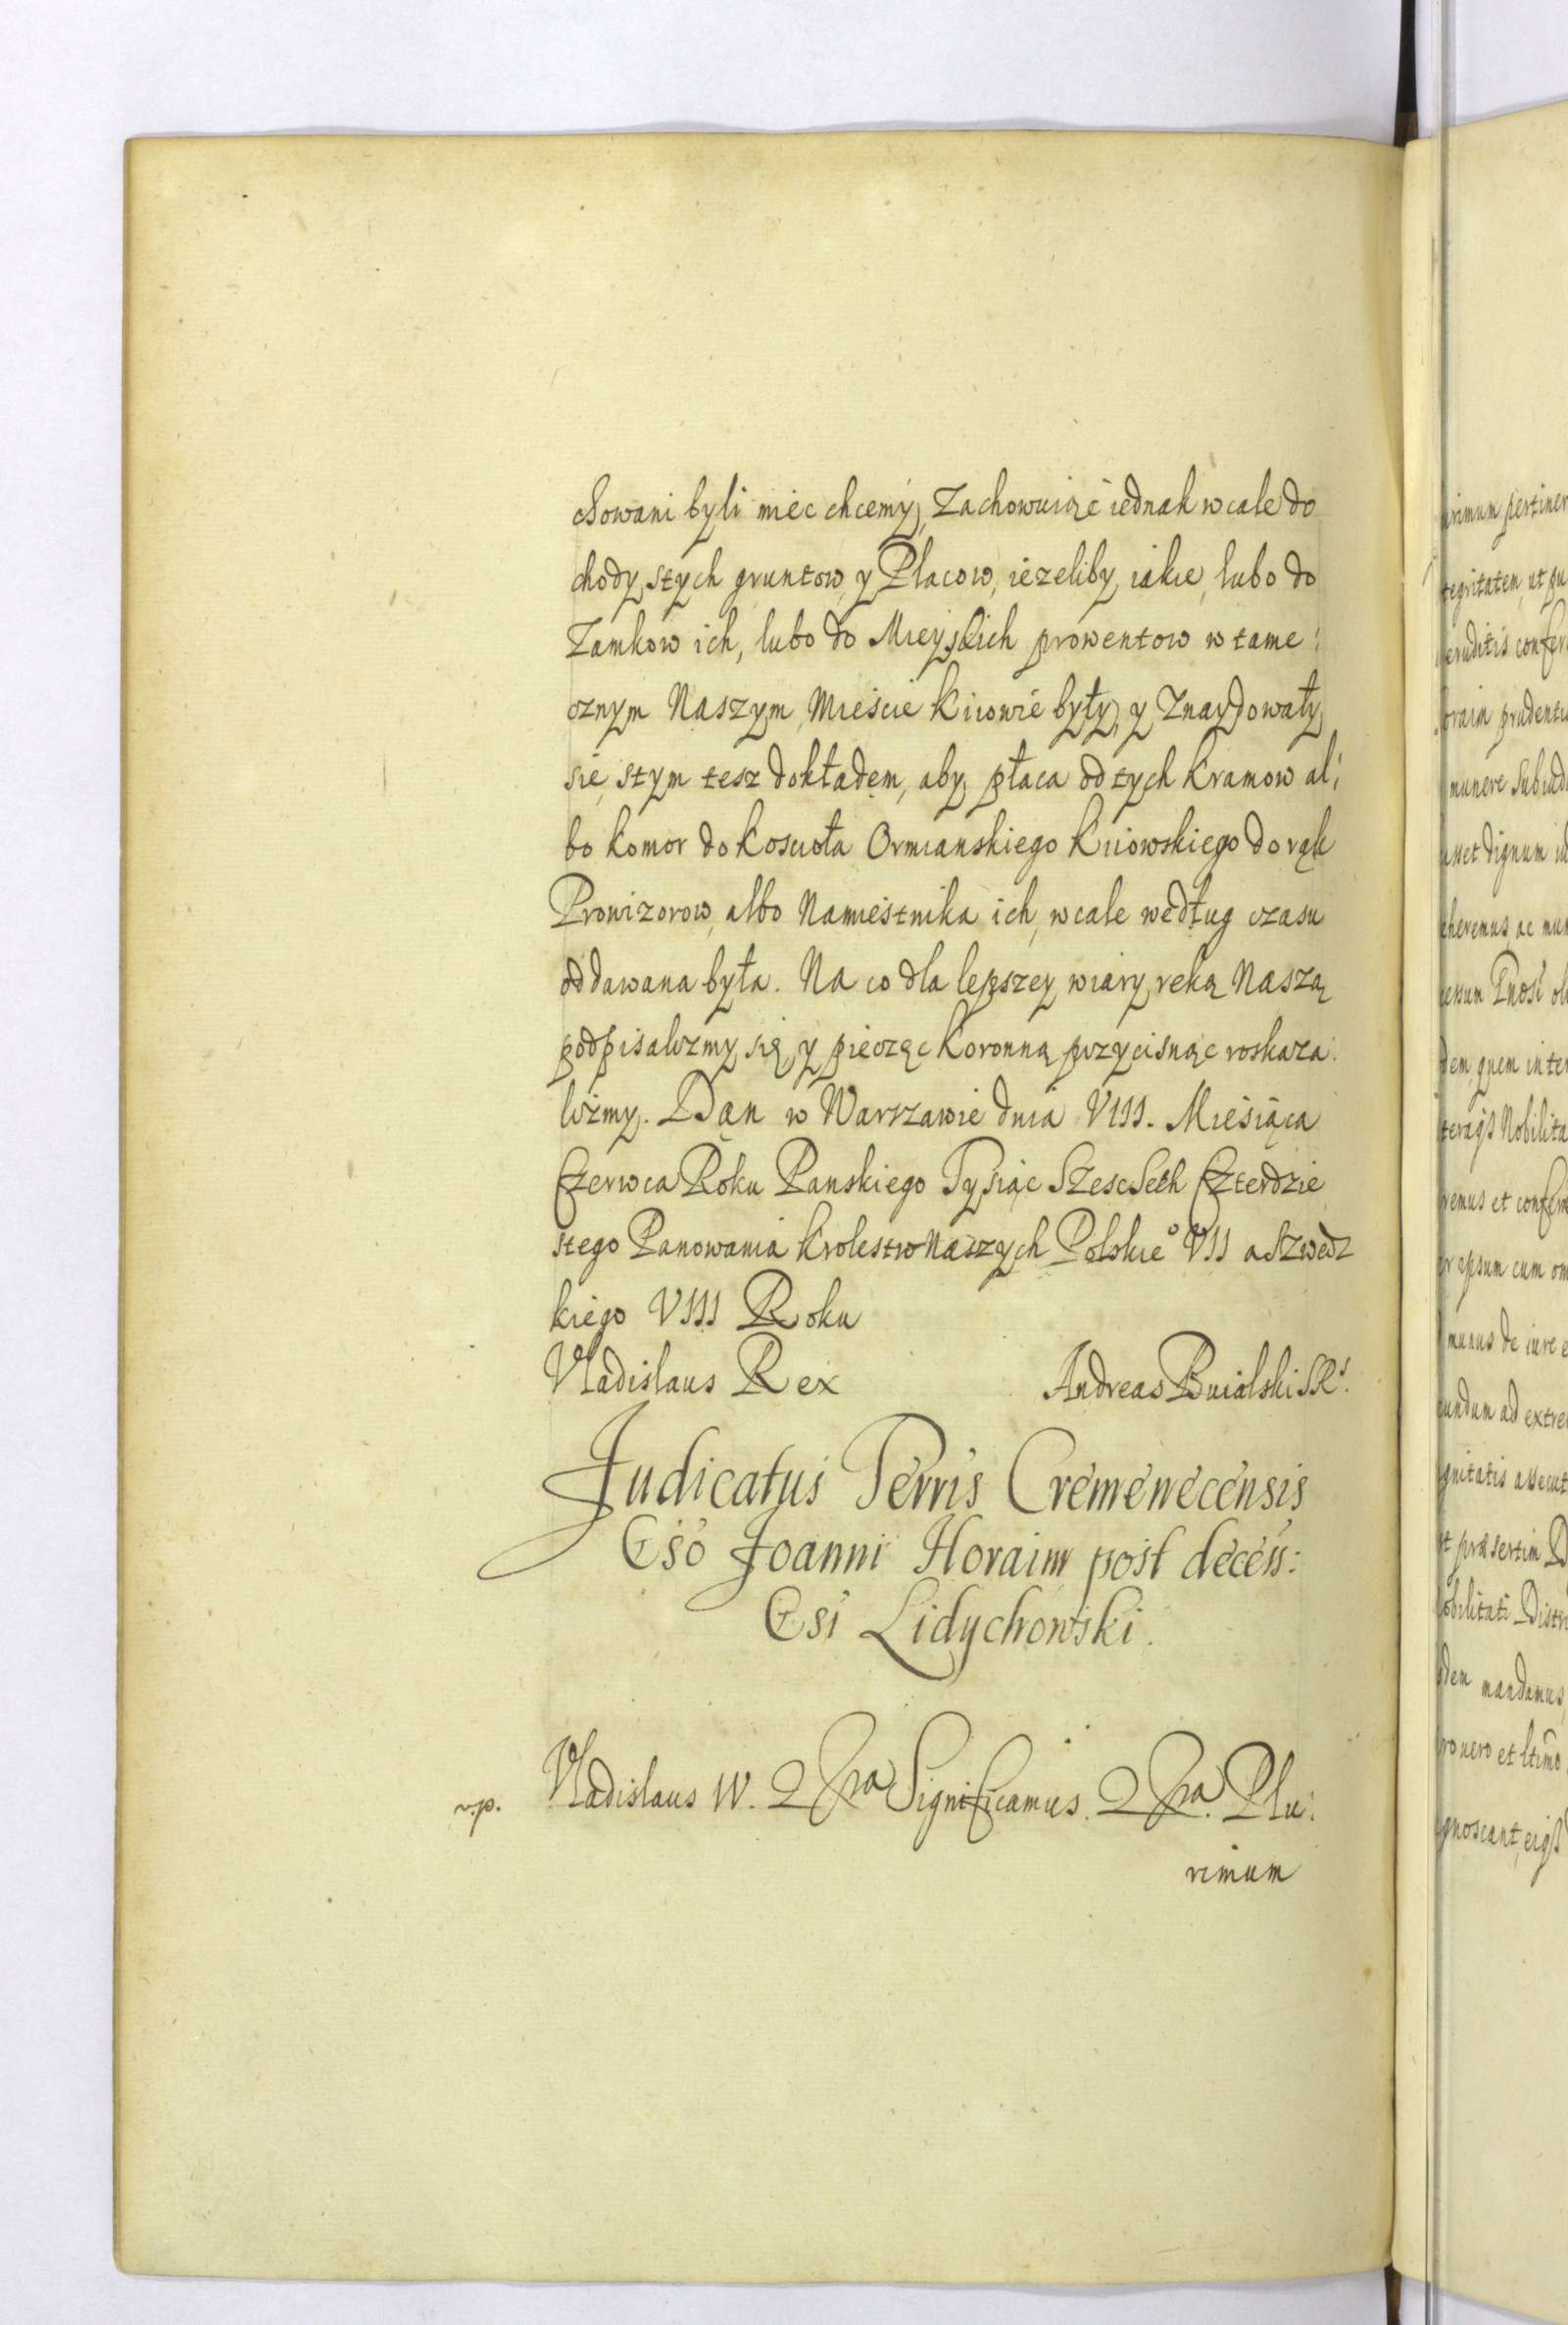 chowani byli miec chcemy, Zachowuiąc iednak wcale do
chody stych gruntow y Placow, iezeliby iakie, lubo do
Zamkow ich, lubo do Mieyskich prowentow w tame:
cznym Naszym Miescie Kiiowie były, y Znaydowały
sie, stym tesz dokładem, aby płaca od tych Kramow al:
bo Komor do Koscioła Ormianskiego Kiiowskiego do rąk
Prowizorow, albo Namiestnika ich, wcale według czasu
oddawana była. Na co dla lepszey wiary, reką Naszą
podpisalizmy się, y pieczęc Koronną przycisnąc roskaza:
lizmy. Dąn w Warszawie dnia VIII. Miesiąca
Czerwca Roku Panskiego Tysiąc Szescseth Czterdzie
stego Panowania Krolestw Naszych Polskieº VII a Szwedz
kiego VIII Roku
Vladislaus Rex Andreas Buialski SRs.
Judicatus Terris Cremenecensis
Gso Joanni Horaim post decess:
Gsi Lidychowski.
v.p. Vladislaus IV. Significamus. Plu:
rimum
rimum pertiner
tegritatem, ut qu
eruditis confer
oraim prudentia
munere Subiud
dignum
heremus, ac mun
dem, quem inter
Nobilita
remus et confer
ipsum cum om
de iure e
ad extre
gnitatis assecut
et præsertim D
obilitati Distri
dem mandamus,
gnoscant,